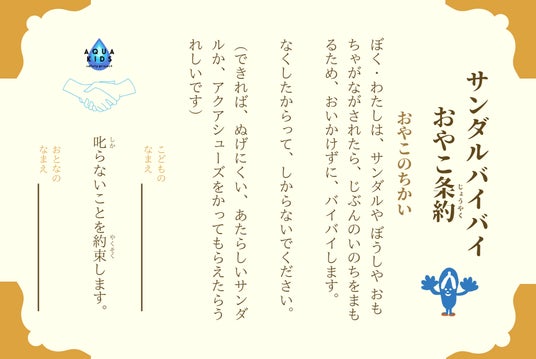 サンダルバイバイ
おやこ条約
じょうやく
おやこのちかい
ぼく・わたしは、サンダルや ぼうしや おも
ちゃがながされたら、じぶんのいのちをまも
るため、おいかけずに、バイバイします。
なくしたからって、しからないでください。
(できれば、ぬげにくい、あたらしいサンダ
ルか、アクアシューズをかってもらえたらう
れしいです)
こどもの
なまえ
叱らないことを約束します。
しか
やくそく
おとなの
なまえ
AQUA
KIDS